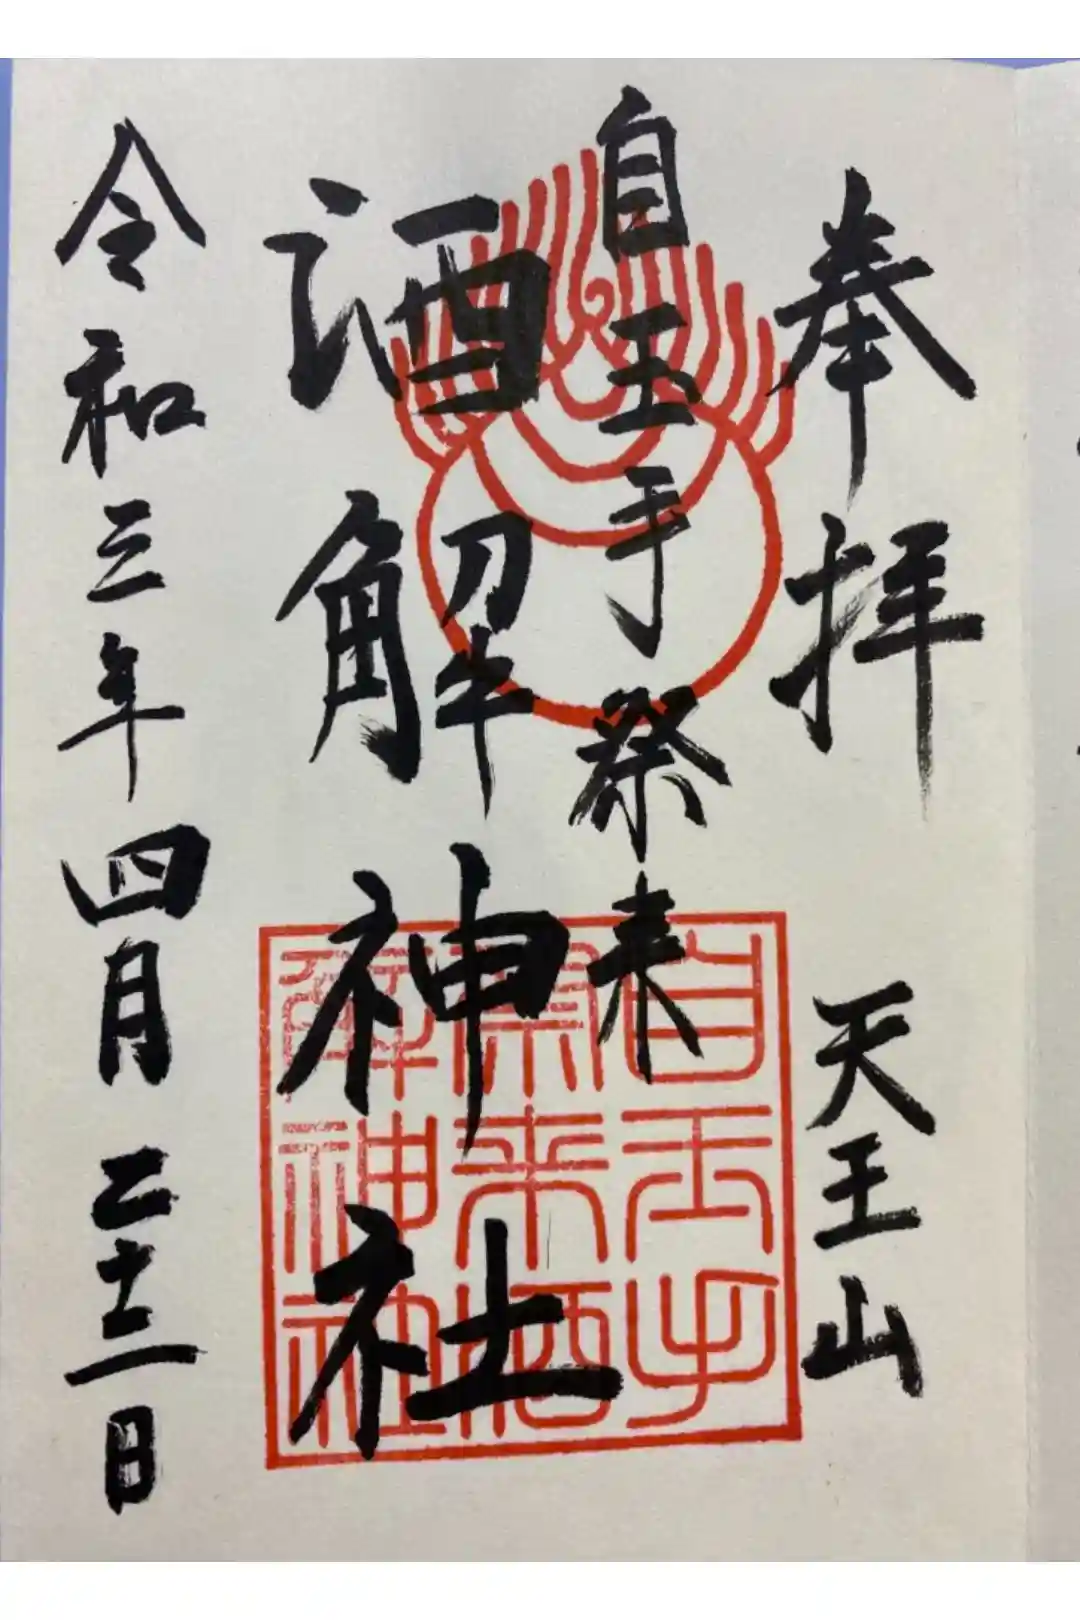 奉拝 天王山
自玉手祭来
酒解神社
令和三年四月二十三日
自玉手
祭来酒
解神社